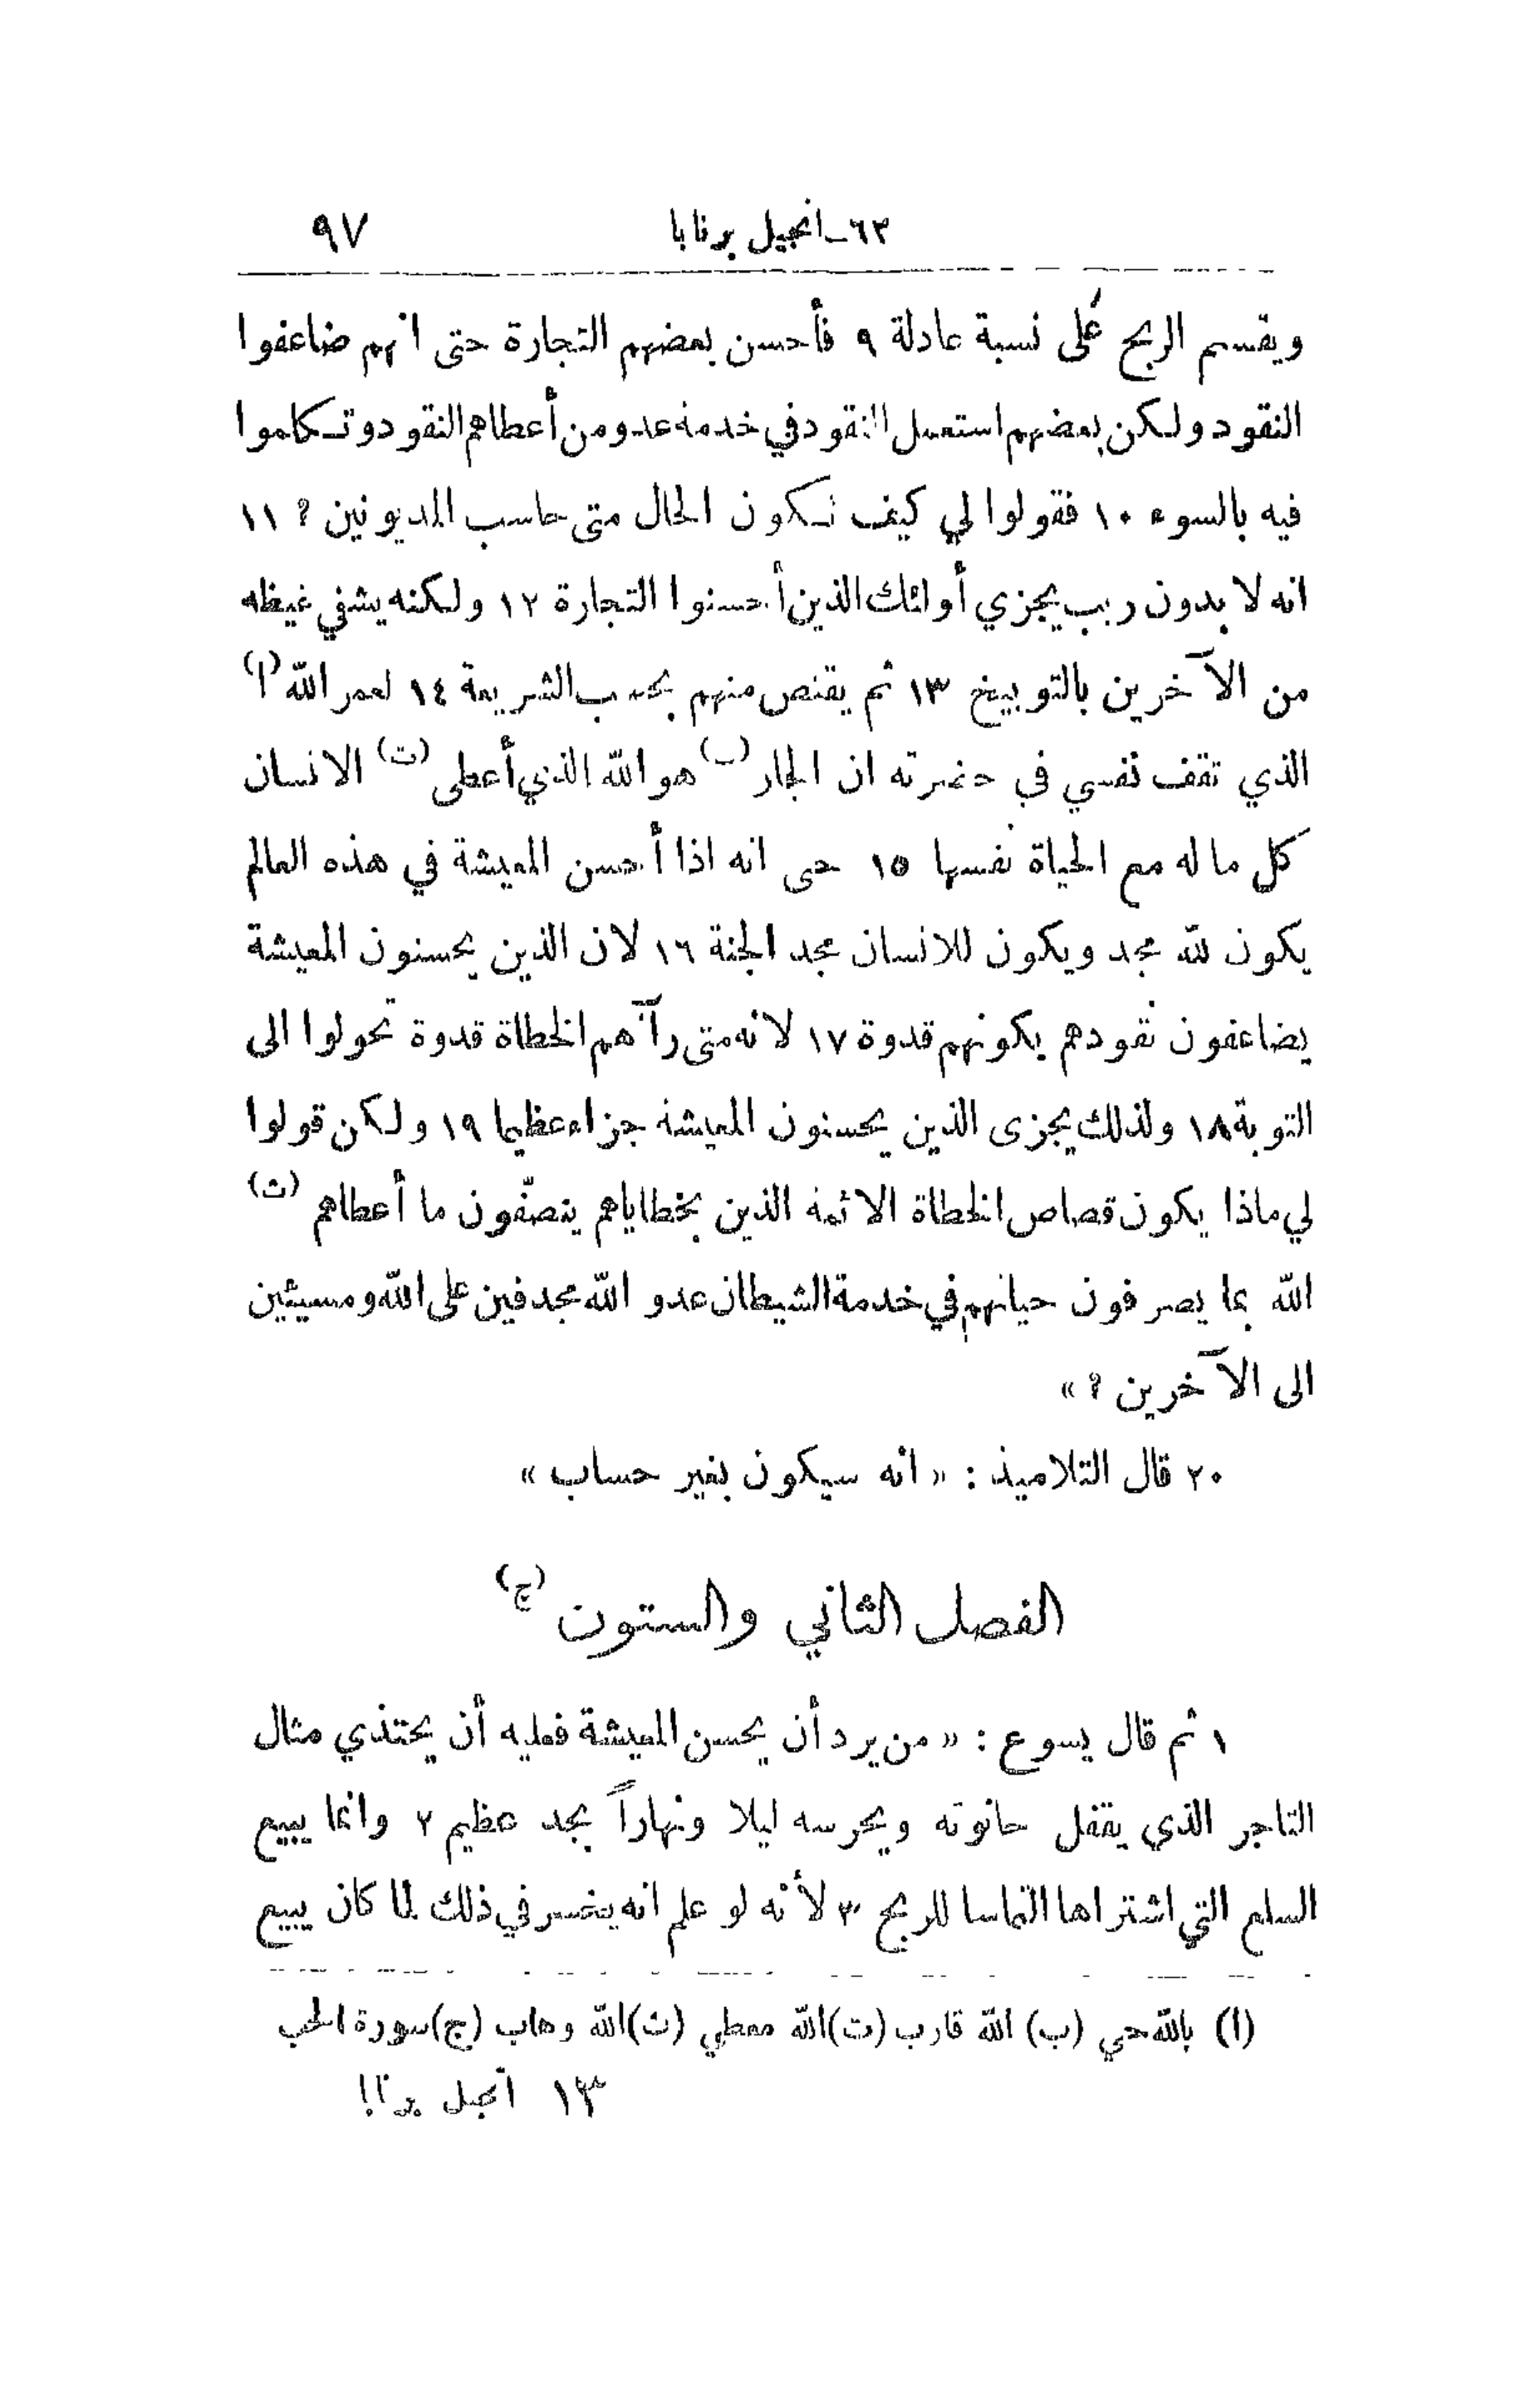 ٦٣ــانجيل برنابا ٩٧
ويقسم الربح على نسبة عادلة ٩ فأحسن بعضهم التجارة حتى انهم ضاعفوا
النقود ولكن بعضهم استعمل النقود في خدمة عدو من أعطاهم النقود وتكلموا
فيه بالسوء ١٠ فقولوا لي كيف تكون الحال متى حاسب المديونين ? ١١
انه لا بدون ريب يجزي أولئك الذين أحسنوا التجارة ١٢ ولكنه يشفي غيظه
من الآخرين بالتوبيخ ١٣ ثم يقتص منهم بحسب الشريعة ١٤ لعمر الله (ا)
الذي تقف نفسي في حضرته ان الجار (ب) هو الله الذي أعطى (ت) الانسان
كل ما له مع الحياة نفسها ١٥ حتى انه اذا أحسن المعيشة في هذه العالم
يكون لله مجد ويكون للانسان مجد الجنة ١٦ لان الذين يحسنون المعيشة
يضاعفون نقودهم بكونهم قدوة ١٧ لانه متى رآهم الخطاة قدوة تحولوا الى
التوبة ١٨ ولذلك يجزى الذين يحسنون المعيشة جزاء عظيما ١٩ ولكن قولوا
لي ماذا يكون قصاص الخطاة الائمة الذين بخطاياهم ينصّفون ما أعطاهم (ث)
الله بما يصرفون حياتهم في خدمة الشيطان عدو الله مجدفين على الله ومسيئين
الى الآخرين ? »
٢٠ قال التلاميذ : « انه سيكون بغير حساب »
الفصل الثاني والستون (ج)
١ ثم قال يسوع : « من يرد أن يحسن المعيشة فعليه أن يحتذي مثال
التاجر الذي يقفل حانوته ويحرسه ليلا ونهاراً بجد عظيم ٢ وانما يبيع
السلع التي اشتراها التماسا للربح ٣ لأنه لو علم انه يخسر في ذلك لما كان يبيع
(ا) بالله حي (ب) الله قارب (ت) الله معطي (ث) الله وهاب (ج) سورة الحب
١٣ انجيل